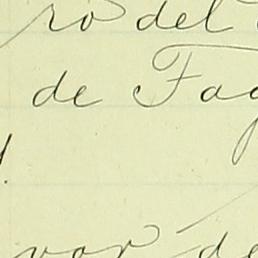 ro del
de Fag
var de